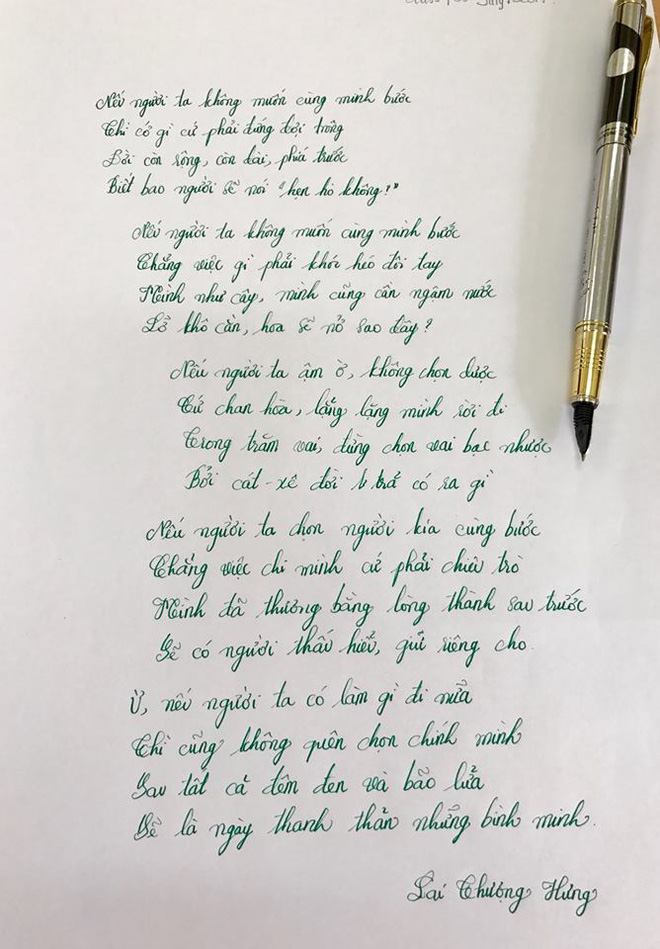 Nếu người ta không muốn cùng mình bước
Thì cớ gì cứ phải đứng đợi trông
Đời còn rộng, còn dài, phía trước
Biết bao người sẽ nói "hẹn hò không?"
Nếu người ta không muốn cùng mình bước
Chẳng việc gì phải khóc héo đôi tay
Mình như cây, mình cũng cần ngâm nước
Lỡ khô cằn, hoa sẽ nở sao đây?
Nếu người ta ậm ờ, không chọn được
Cứ chan hòa, lặng lặng mình rời đi
Trong trăm vai, đừng chọn vai bạc nhược
Bởi cát-xê đời trả có ra gì
Nếu người ta chọn người kia cùng bước
Chẳng việc chi mình cứ phải chiêu trò
Mình đã thương bằng lòng thành sau trước
Sẽ có người thấu hiểu, giữ riêng cho.
Ừ, nếu người ta có làm gì đi nữa
Thì cũng không quên chọn chính mình
Sau tất cả đêm đen và bão lửa
Sẽ là ngày thanh thản những bình minh.
Lai Thượng Hưng